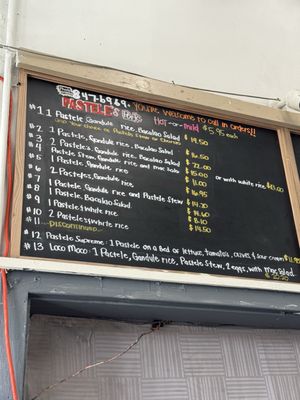 847-6969. You're Welcome to call in Orders!!
PASTELES Hot-or-Mild $5.95 each
#1 1 Pastele, Gandule Rice, Bacalao Salad
and Your Choice of Pastele Stew or Chorizo $19.50
#2 1 Pastele, Gandule rice, Bacalao Salad $16.50
#3 2 Pastele's, Gandule rice, Bacalao Salad $22.00
#4 Pastele Stew, Gandule rice and Mac Salad $15.00 or with white rice $13.00
#5 1 Pastele, Gandule rice $11.00
#6 2 Pasteles, Gandule rice $16.95
#7 1 Pastele, Gandule rice and Pastele Stew
#8 1 Pastele, Bacalao Salad $14.20
#9 1 Pastele & white rice $14.60
#10 2 Pastele & white rice $8.10
#11 ...DISCONTINUED... $14.50
#12 Pastele Supreme: 1 Pastele on a Bed of lettuce, tomatoes, olives & sour cream $11.95
#13 Loco Moco: 1 Pastele, Gandule rice, Pastele Stew, 2 eggs, with Mac Salad